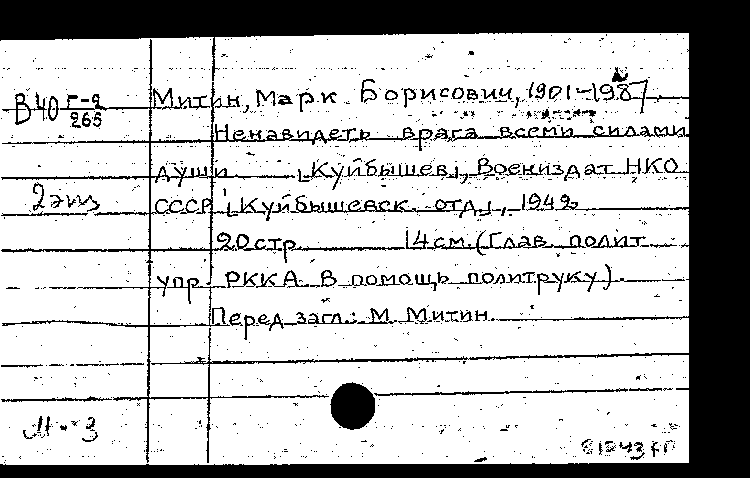 В40 Г-2/265
Митин, Марк Борисович, 1901-1987.
Ненавидеть врага всеми силами
души [Куйбышев], Воениздат НКО
2 экз
СССР [Куйбышевск. отд], 1942
20 стр 14 см. (Глав. полит
упр. РККА. В помощь политруку).
Перед загл.: М. Митин.